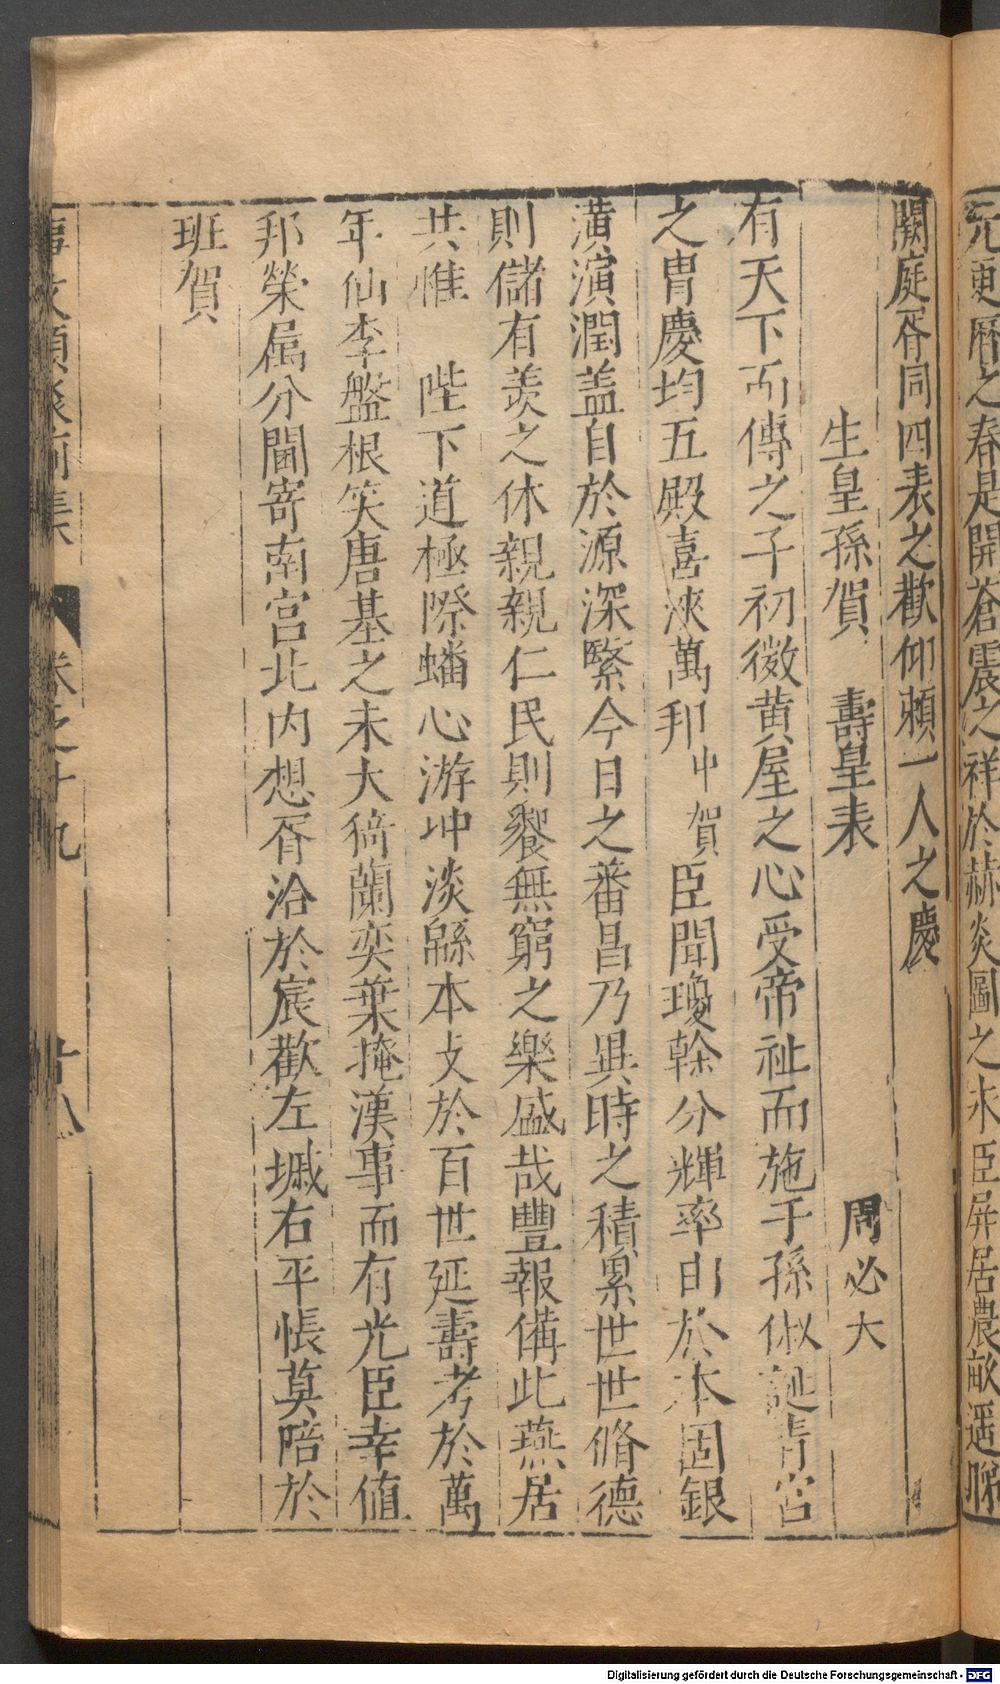 元更曆之春是開蒼震之祥於赫炎圖之永臣屏居農畝遥睇
闕庭胥同四表之歡仰賴一人之慶
生皇孫賀　壽皇表　周必大
有天下而傳之子初微黄屋之心受帝祉而施于孫俶誕青宮
之胄慶均五殿喜浹萬邦中賀臣聞瓊榦分輝率由於本固銀
潢演潤盖自於源深繄今日之蕃昌乃異時之積累世世脩德
則儲有羡之休親親仁民則饗無窮之樂盛哉豐報備此燕居
共惟　陛下道極際蟠心游冲淡緜本支於百世延壽考於萬
年仙李盤根笑唐基之未大猗蘭奕葉掩漢事而有光臣幸值
邦榮属分閫寄南宫北内想胥洽於宸歡左墄右平悵莫陪於
班賀
事文類聚前集　卷之十九　廿八
Digitalisierung gefördert durch die Deutsche Forschungsgemeinschaft - DFG